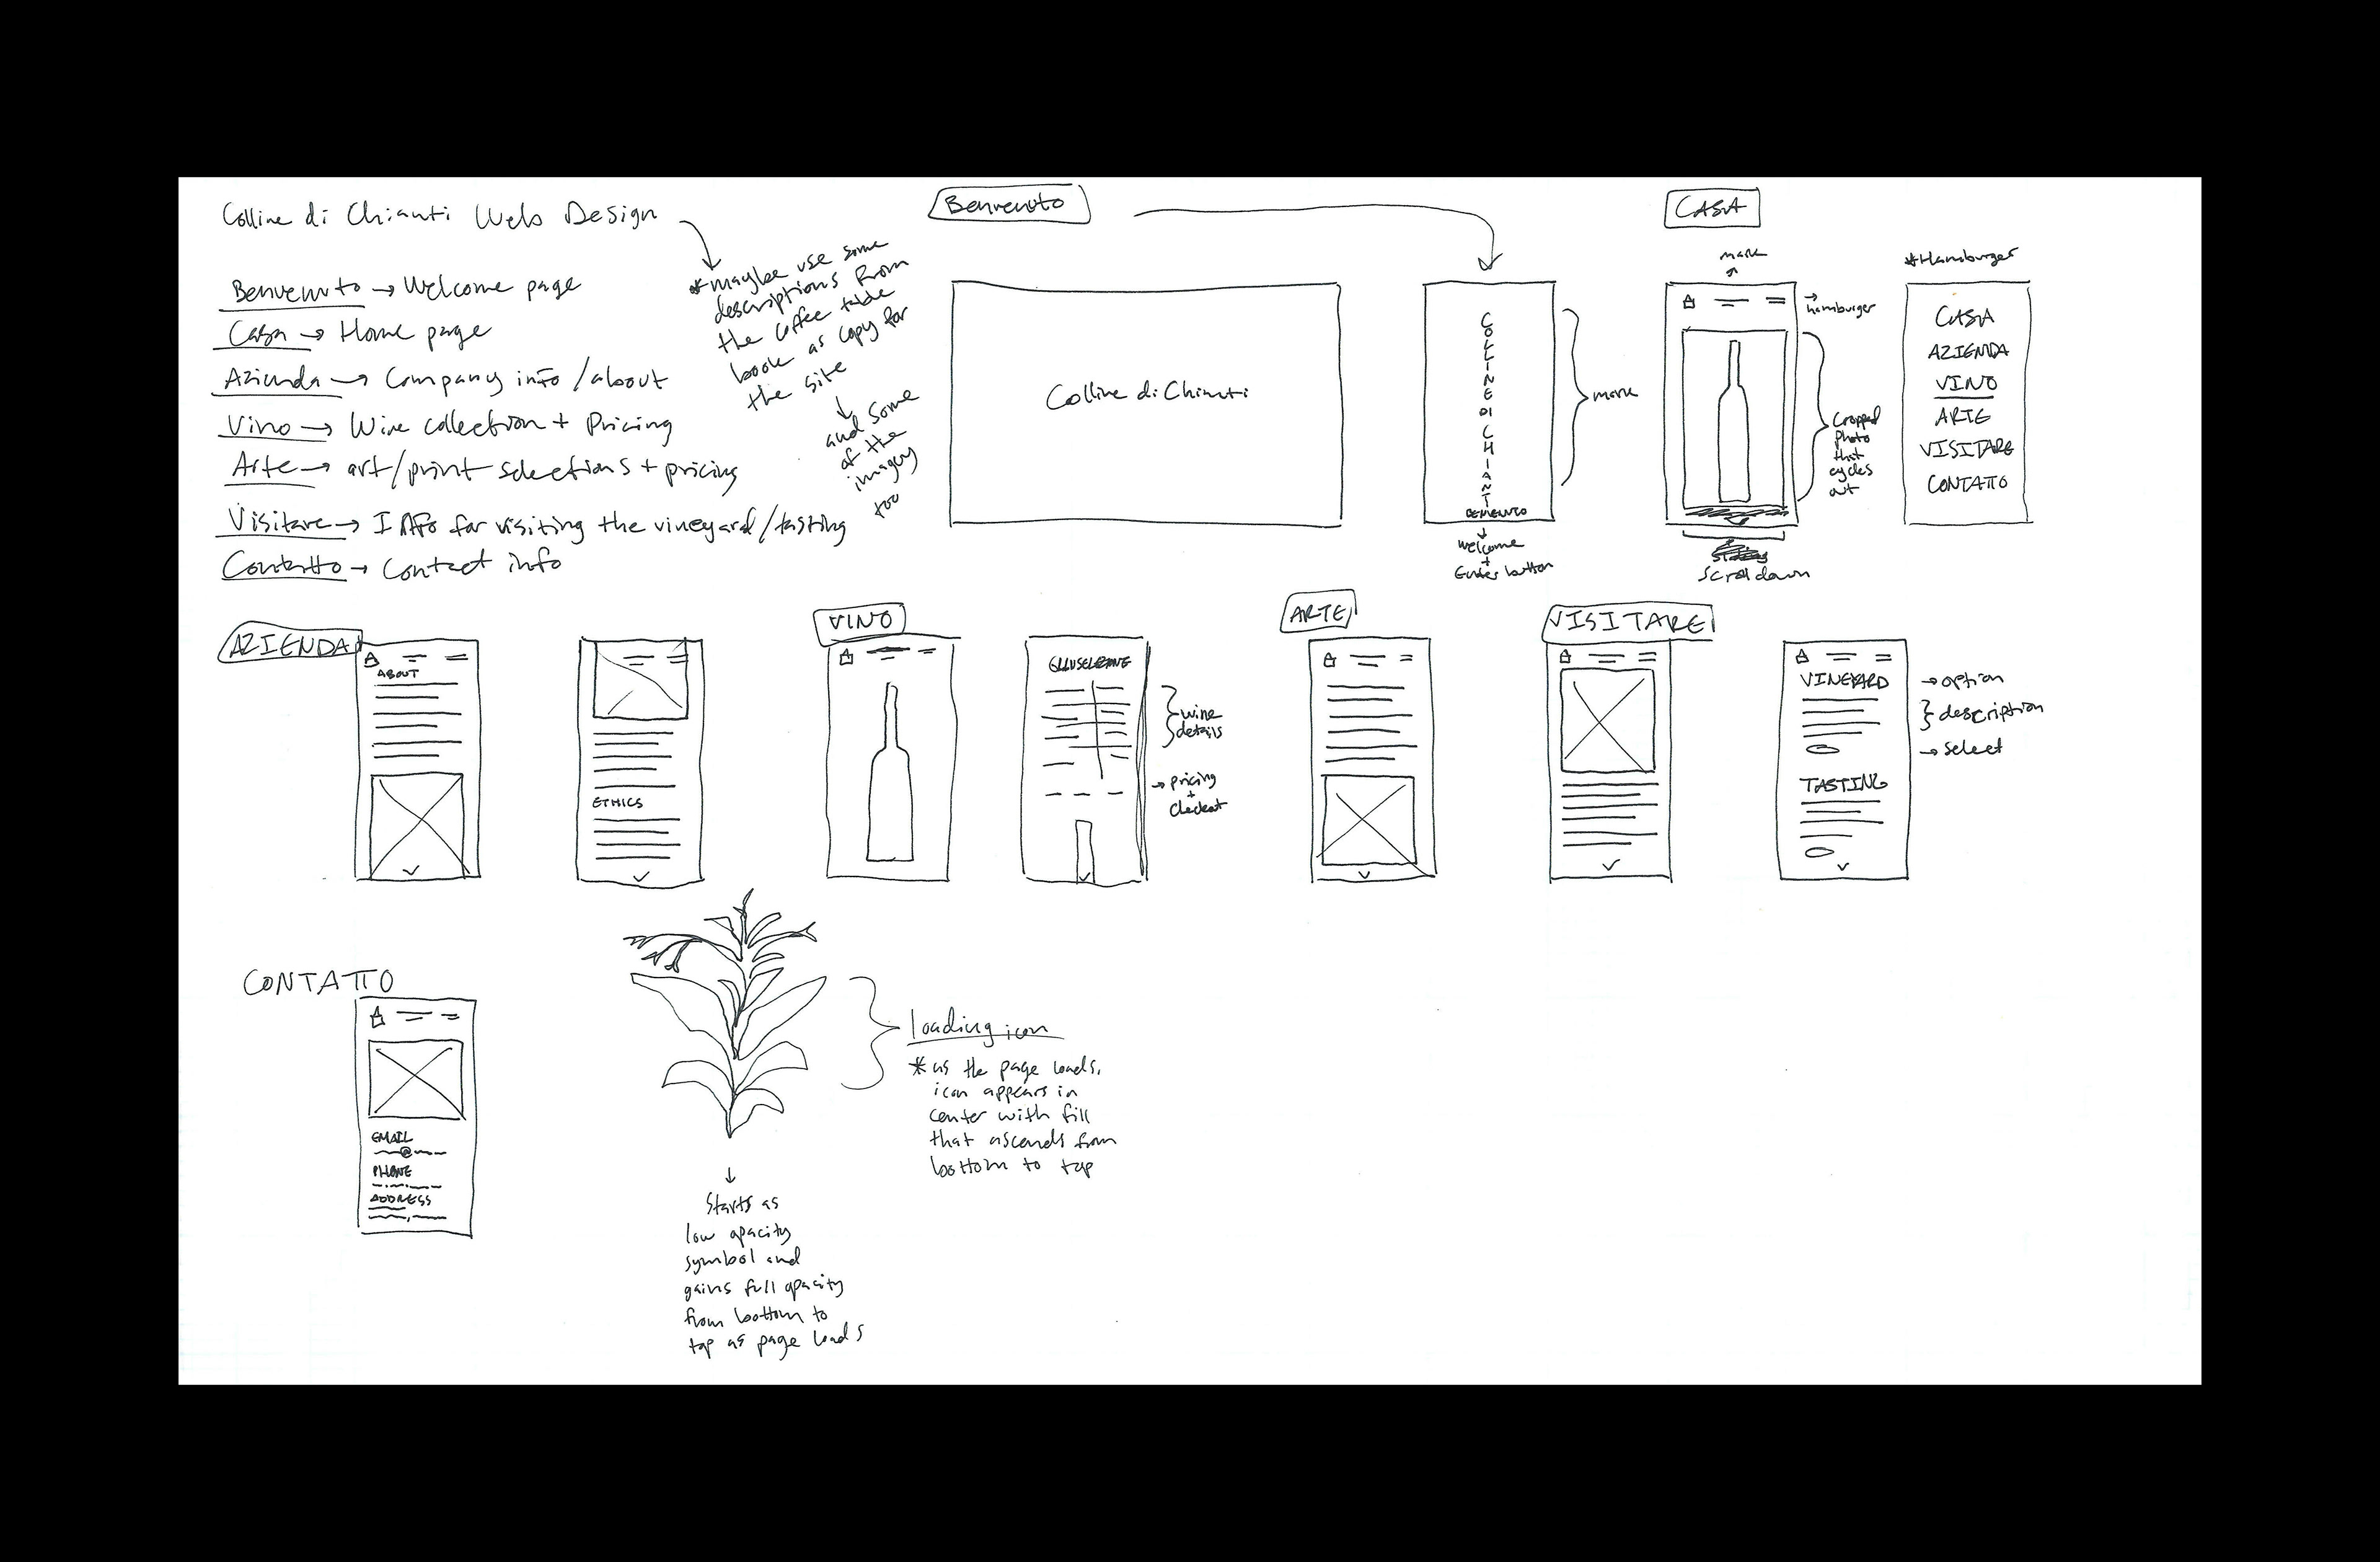 Colline di Chianti Web Design
Benvenuto → Welcome page
Casa → Home page
Azienda → Company info / about
Vino → Wine collection + Pricing
Arte → art/print selections + pricing
Visitare → Info for visiting the vineyard/tasting
Contatto → Contact info
*maybe use some
descriptions from
the coffee table
book as copy for
the site
and some
of the
imagery
too
Benvenuto
Colline di Chianti
COLLINE DI CHIANTI
welcome
+
Enter button
mark
CASA
mark
hamburger
Cropped
photo
that
cycles
out
scroll down
*Hamburger
CASA
AZIENDA
VINO
ARTE
VISITARE
CONTATTO
AZIENDA
ABOUT
ETHICS
VINO
wine
details
→ pricing
+
checkout
ARTE
VISITARE
VINEYARD
→ option
description
→ select
TASTING
CONTATTO
EMAIL
@
PHONE
ADDRESS
loading icon
* as the page loads,
icon appears in
center with fill
that ascends from
bottom to top
Starts as
low opacity
symbol and
gains full opacity
from bottom to
top as page loads